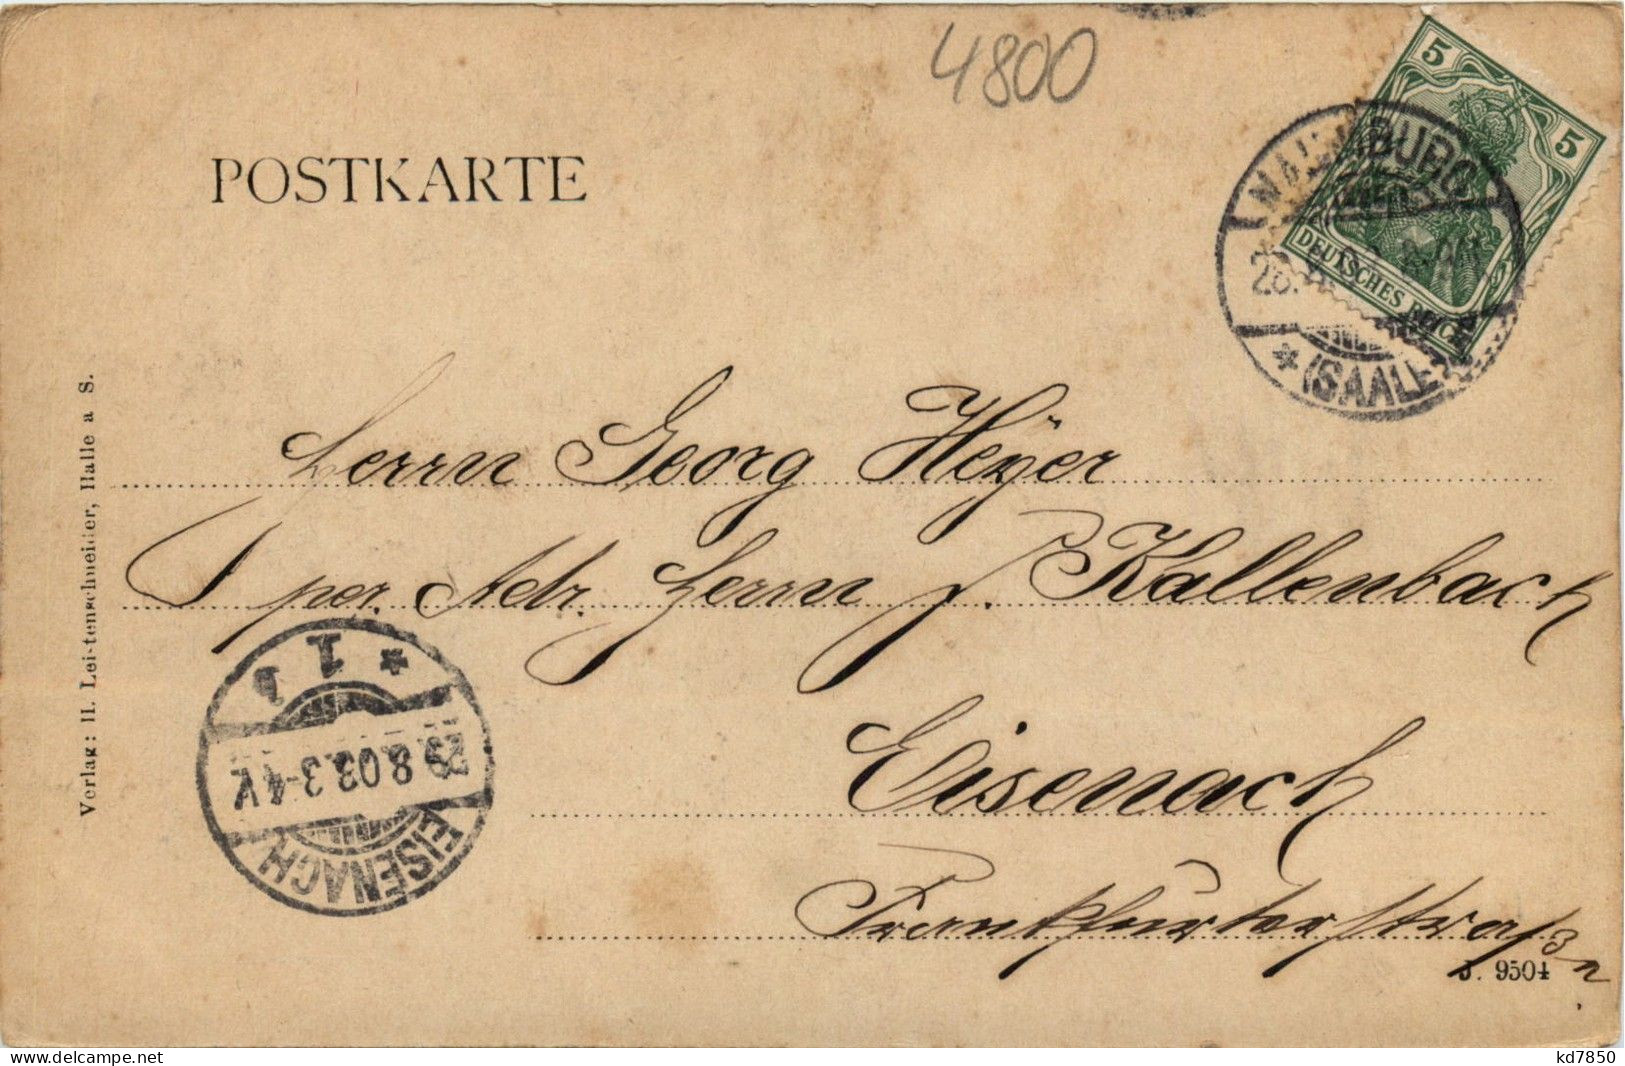 4800
5
5
DEUTSCHES REICH
NAUMBURG
(SAALE)
POSTKARTE
Herrn Georg Heÿer
per. Adr. Herrn J. Kallenbach
Eisenach
Frankfurterstraße
1 b
29.8.03. 3-4 V.
EISENACH
Verlag: H. Leitenschneider, Halle a S.
J. 9504
www.delcampe.net
kd7850